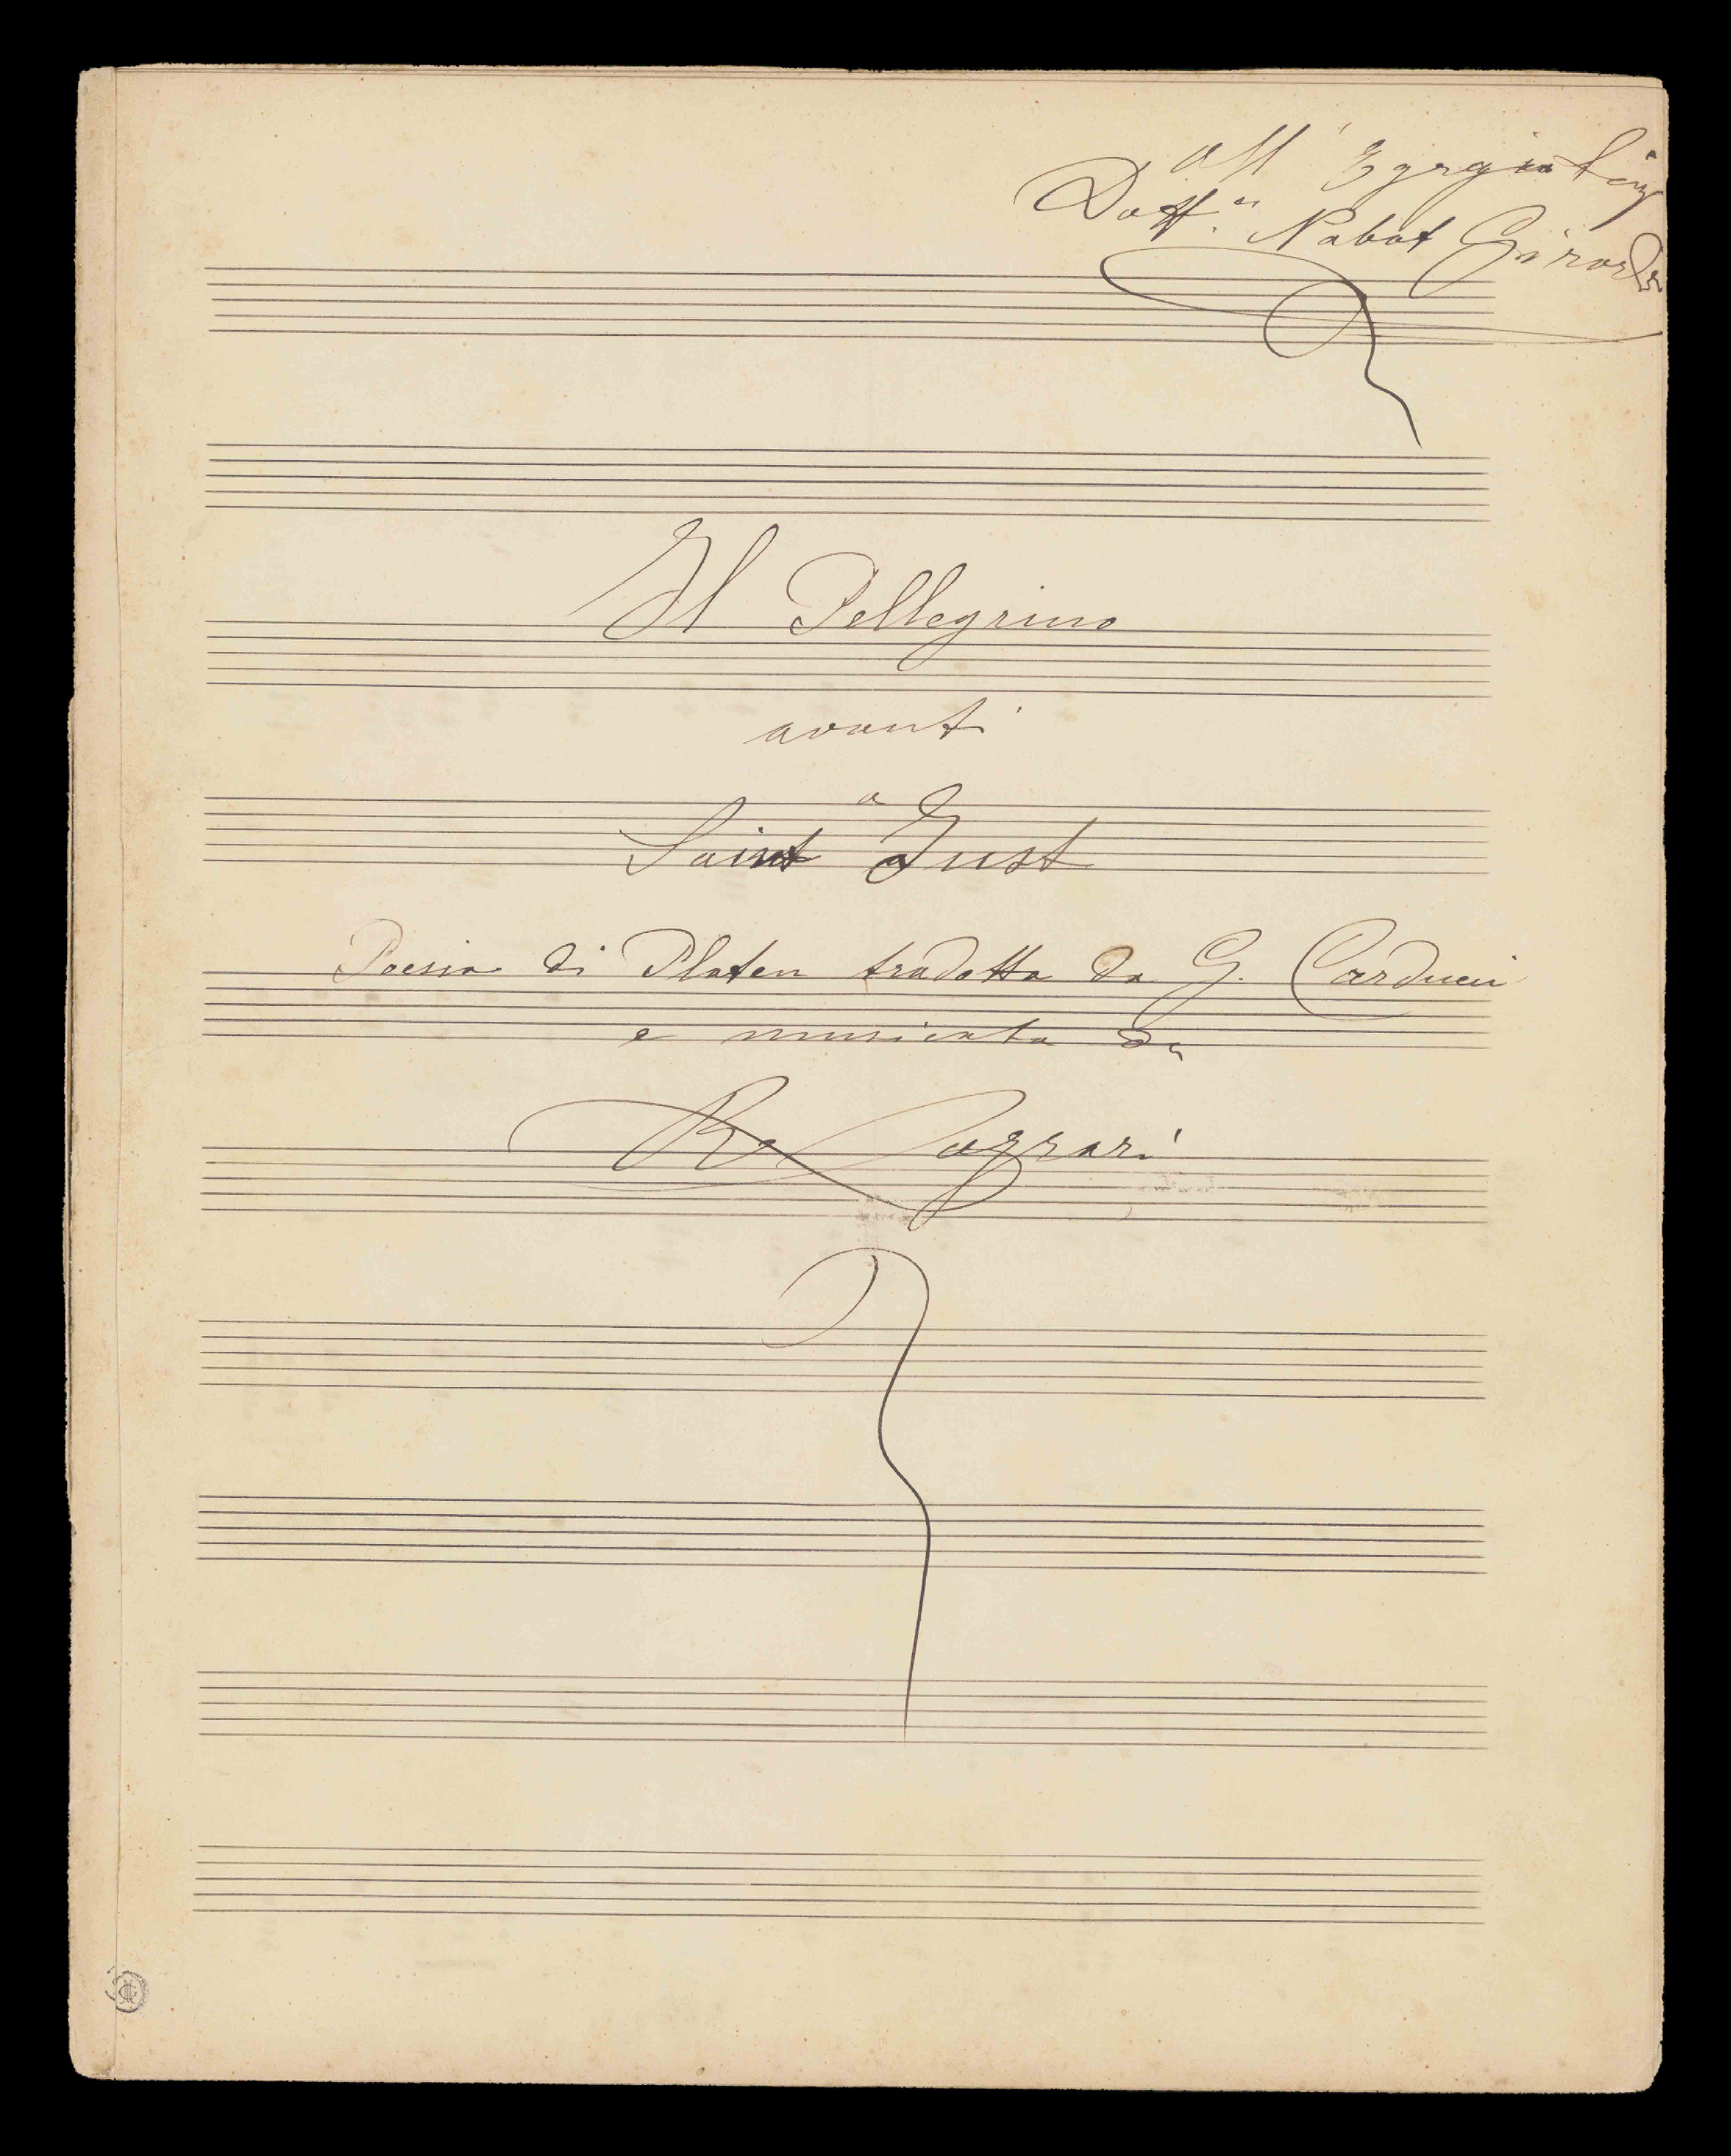 All' Egregio
Dott.r Nabot
Il Pellegrino
avanti
a
Saint Just
Poesia di Platen tradotta da G. Carducci
e musicata da